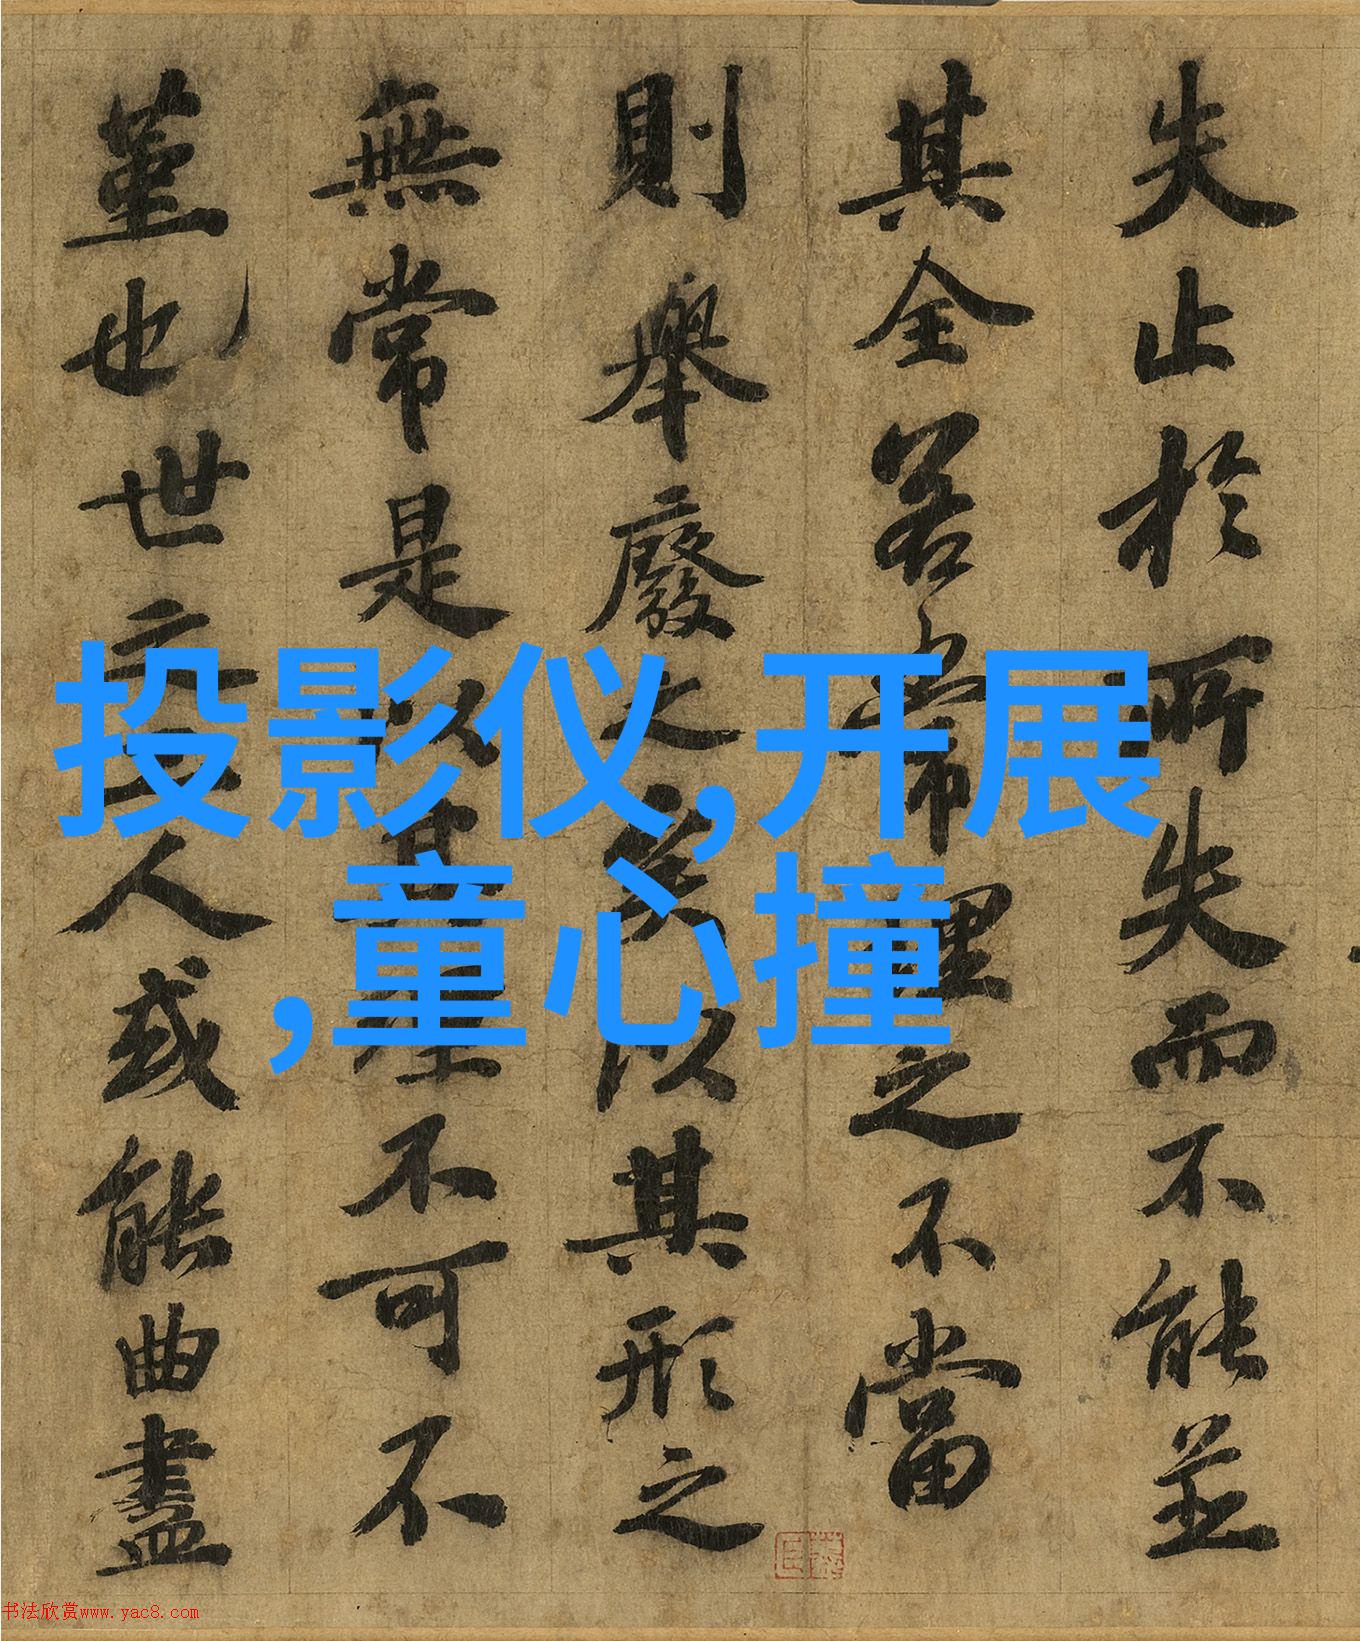 失止於所失而不能並
其全若常理之不當
則舉廢之矣以其形之
無常是以其理不可不
堇也世之工人或能曲盡
投影仪,开展
,童心撞
书法欣赏www.yac8.com